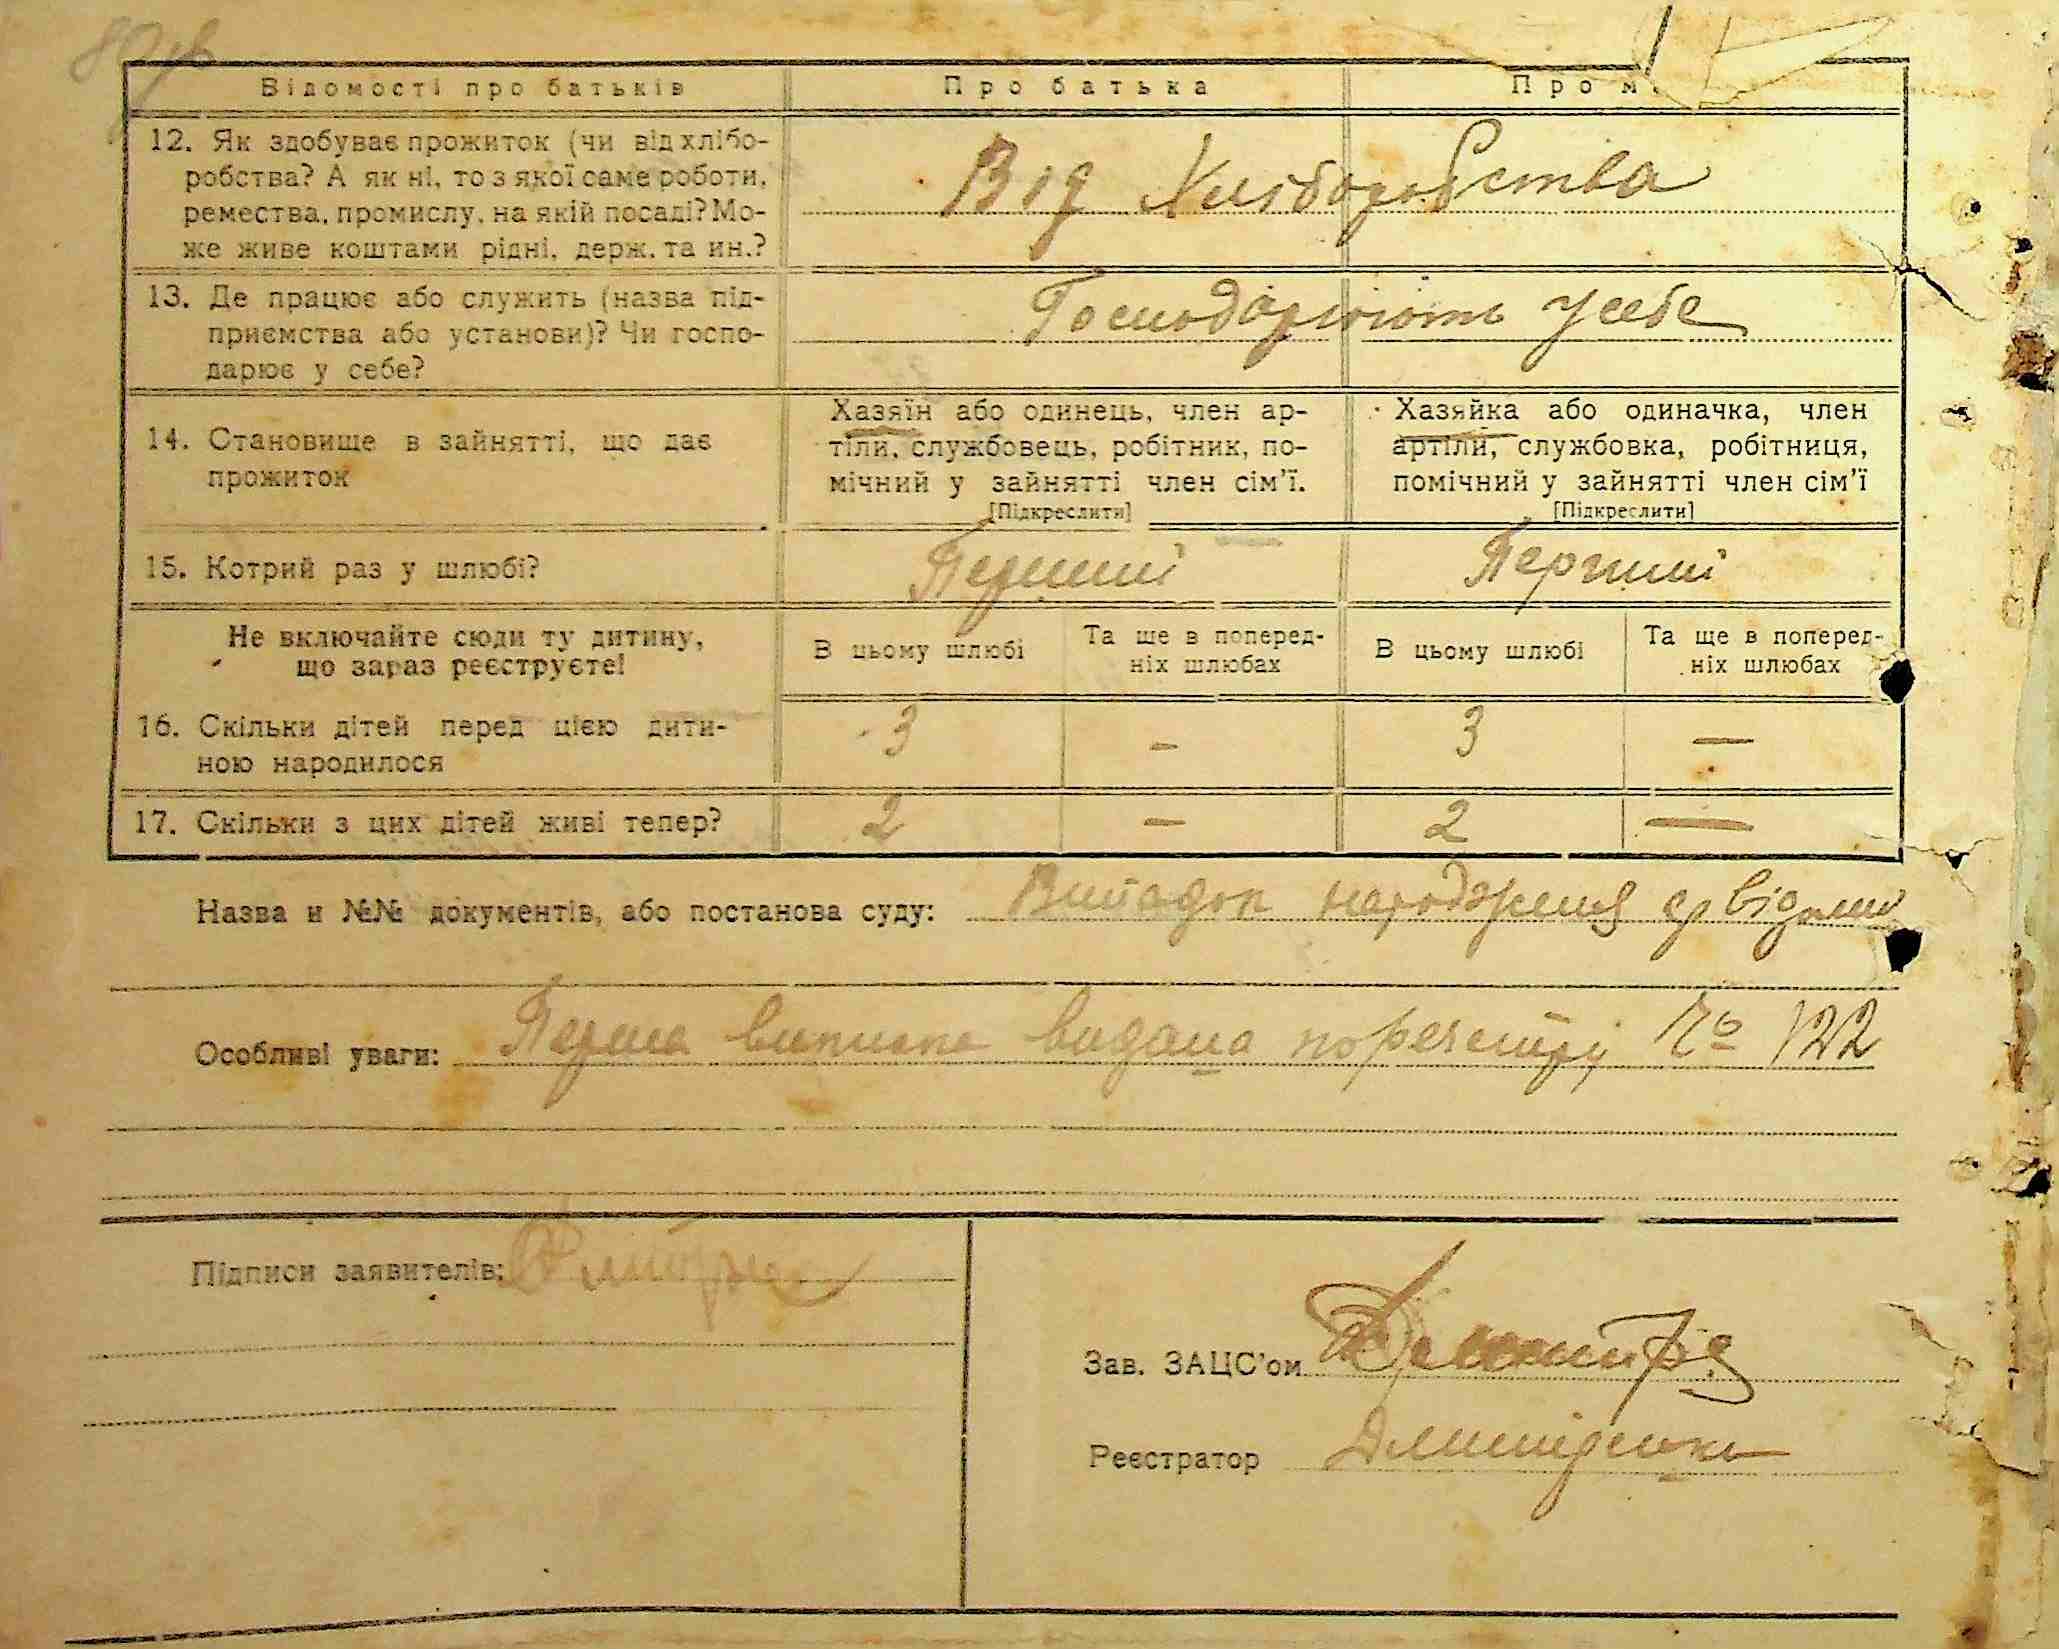 Відомості про батьків Про батька Про м
12. Як здобуває прожиток (чи від хлібо-
робства? А як ні, то з якої саме роботи,
ремества, промислу, на якій посаді? Мо-
же живе коштами рідні, держ. та ин.?
Від Хліборобства
13. Де працює або служить (назва під-
приємства або установи)? Чи госпо-
дарює у себе?
Господарюють у себе
14. Становище в зайнятті, що дає
прожиток
Хазяїн або одинець, член ар-
тіли, службовець, робітник, по-
мічний у зайнятті член сім'ї.
[Підкреслити]
Хазяйка або одиначка, член
артіли, службовка, робітниця,
помічний у зайнятті член сім'ї
[Підкреслити]
15. Котрий раз у шлюбі? Перший Перший
Не включайте сюди ту дитину,
що зараз реєструєте!
В цьому шлюбі
Та ще в поперед-
ніх шлюбах
В цьому шлюбі
Та ще в поперед-
ніх шлюбах
16. Скільки дітей перед цією дити-
ною народилося
3 — 3 —
17. Скільки з цих дітей живі тепер? 2 — 2 —
Назва и №№ документів, або постанова суду: Випадок народження
Особливі уваги: Перша виписка видана по реєстру № 122
Підписи заявителів:
Зав. ЗАЦС'ом
Реєстратор